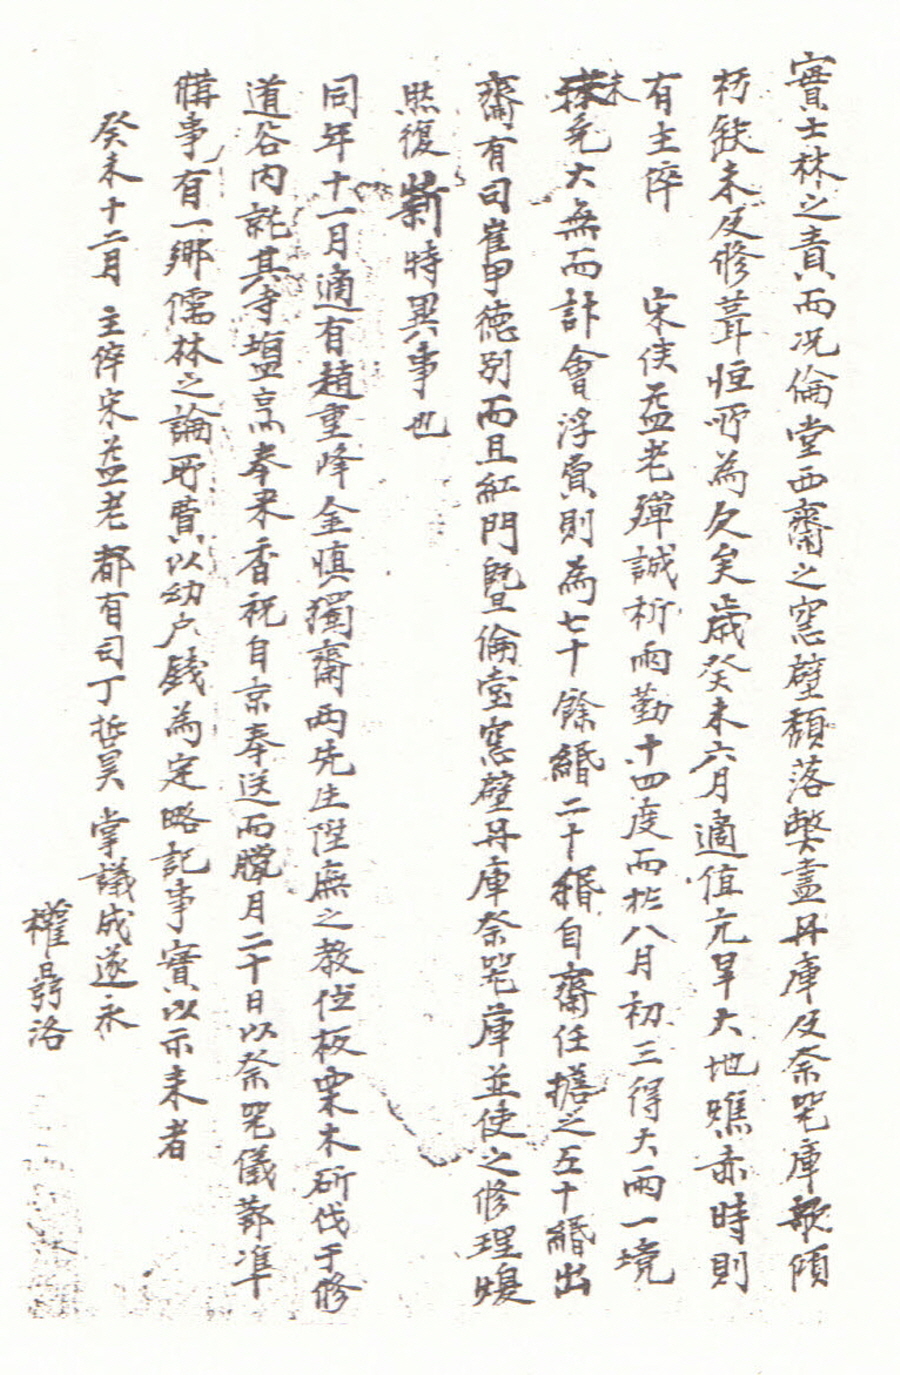 實士林之責而况倫堂西齋之窓壁頹落獘盡丹庫及祭器庫歌傾
朽敗未及修葺恒所為欠矣歲癸未六月適值亢旱大地燋赤時則
有主倅 宋侯益老殫誠祈雨勤十四度而於八月初三得大雨一境
未免大無而計會浮費則為七十餘緡二十緡自齋任搢之五十緡出
齋有司崔甲德別而且紅門曁倫堂窓壁丹庫祭器庫並使之修理煥
然復新特異事也
同年十一月適有趙重峰金愼獨齋兩先生陞廡之教位板栗木斫伐于修
道谷內託其寺塩烹奉来香祝自京奉送而臘月二十日以祭器儀節準
備事有一鄉儒林之論所費以幼戶錢為定略記事實以示来者
癸未十二月 主倅宋益老 都有司丁哲昊 掌議成遂永
權㬎洛